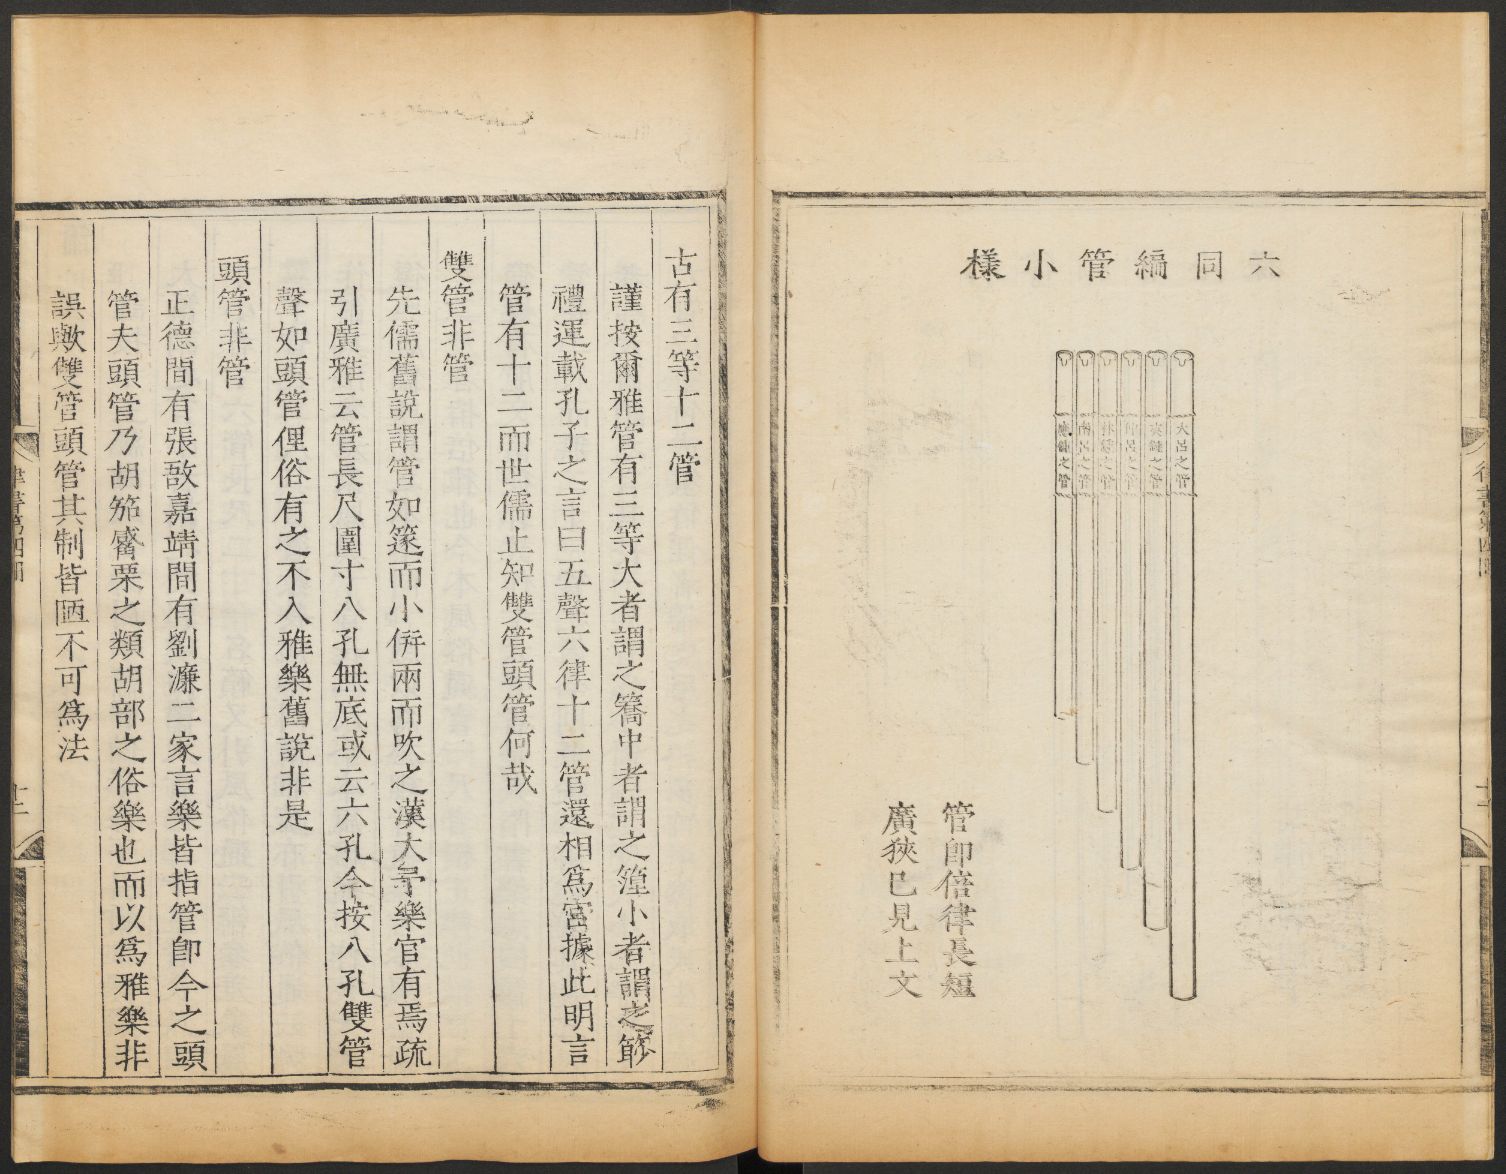 六同編管小樣
大呂之管
夾鍾之管
仲呂之管
林鍾之管
南呂之管
應鍾之管
管卽倍律長短
廣狹已見上文
古有三等十二管
謹按爾雅管有三等大者謂之簥中者謂之篞小者謂之篎
禮運載孔子之言曰五聲六律十二管還相爲宮據此明言
管有十二而世儒止知雙管頭管何哉
雙管非管
先儒舊說謂管如篴而小倂兩而吹之漢大予樂官有焉疏
引廣雅云管長尺圍寸八孔無底或云六孔今按八孔雙管
聲如頭管俚俗有之不入雅樂舊說非是
頭管非管
正德間有張敔嘉靖間有劉濂二家言樂皆指管卽今之頭
管夫頭管乃胡笳觱栗之類胡部之俗樂也而以爲雅樂非
誤歟雙管頭管其制皆陋不可爲法